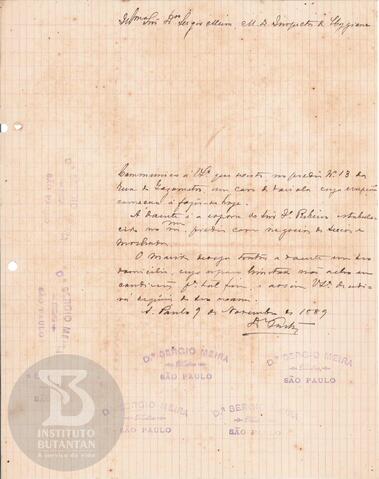 Snr Dr Sergio Meira M. D. Inspector de Hygiene
Communico á V.Sa que existe no predio No 13 da
Rua de um caso de variola cuja erupção
começou á hoje.
A doente é a esposa do Snr Ribeiro estabele-
cido no mmo predio com negocio de seccos e
molhados
O Marido deseja tratar a doente em seu
domicilio, cujo não acho em
condições pa tal fim, e assim V.Sa
S. Paulo 9 de Novembro de 1889
Dr
DR SERGIO MEIRA
SÃO PAULO
DR SERGIO MEIRA
SÃO PAULO
DR SERGIO MEIRA
SÃO PAULO
DR SERGIO MEIRA
SÃO PAULO
DR SERGIO MEIRA
SÃO PAULO
INSTITUTO
BUTANTAN
A serviço da vida